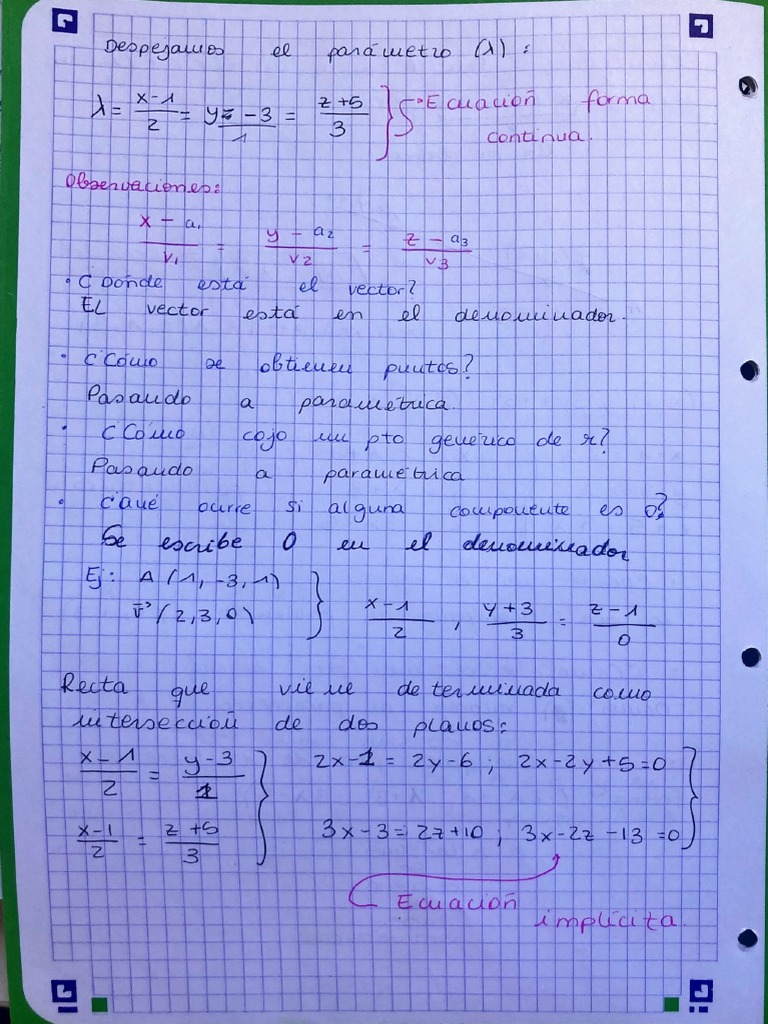 Despejamos el parámetro (λ):
λ = (x-1)/2 = (y - 3)/1 = (z+5)/3 } Ecuación forma
continua.
Observaciones:
(x - a₁)/v₁ = (y - a₂)/v₂ = (z - a₃)/v₃
· ¿Dónde está el vector?
El vector está en el denominador.
· ¿Cómo se obtienen puntos?
Pasando a paramétrica.
· ¿Cómo cojo un pto genérico de r?
Pasando a paramétrica
· ¿Qué ocurre si alguna componente es 0?
Se escribe 0 en el denominador
Ej: A (1, -3, 1)
v⃗ (2, 3, 0) } (x-1)/2 , (y+3)/3 = (z-1)/0
Recta que viene determinada como
intersección de dos planos:
(x-1)/2 = (y-3)/1 } 2x-1 = 2y-6 ; 2x-2y+5=0
(x-1)/2 = (z+5)/3 } 3x-3 = 2z+10 ; 3x-2z-13=0
Ecuación
implícita.